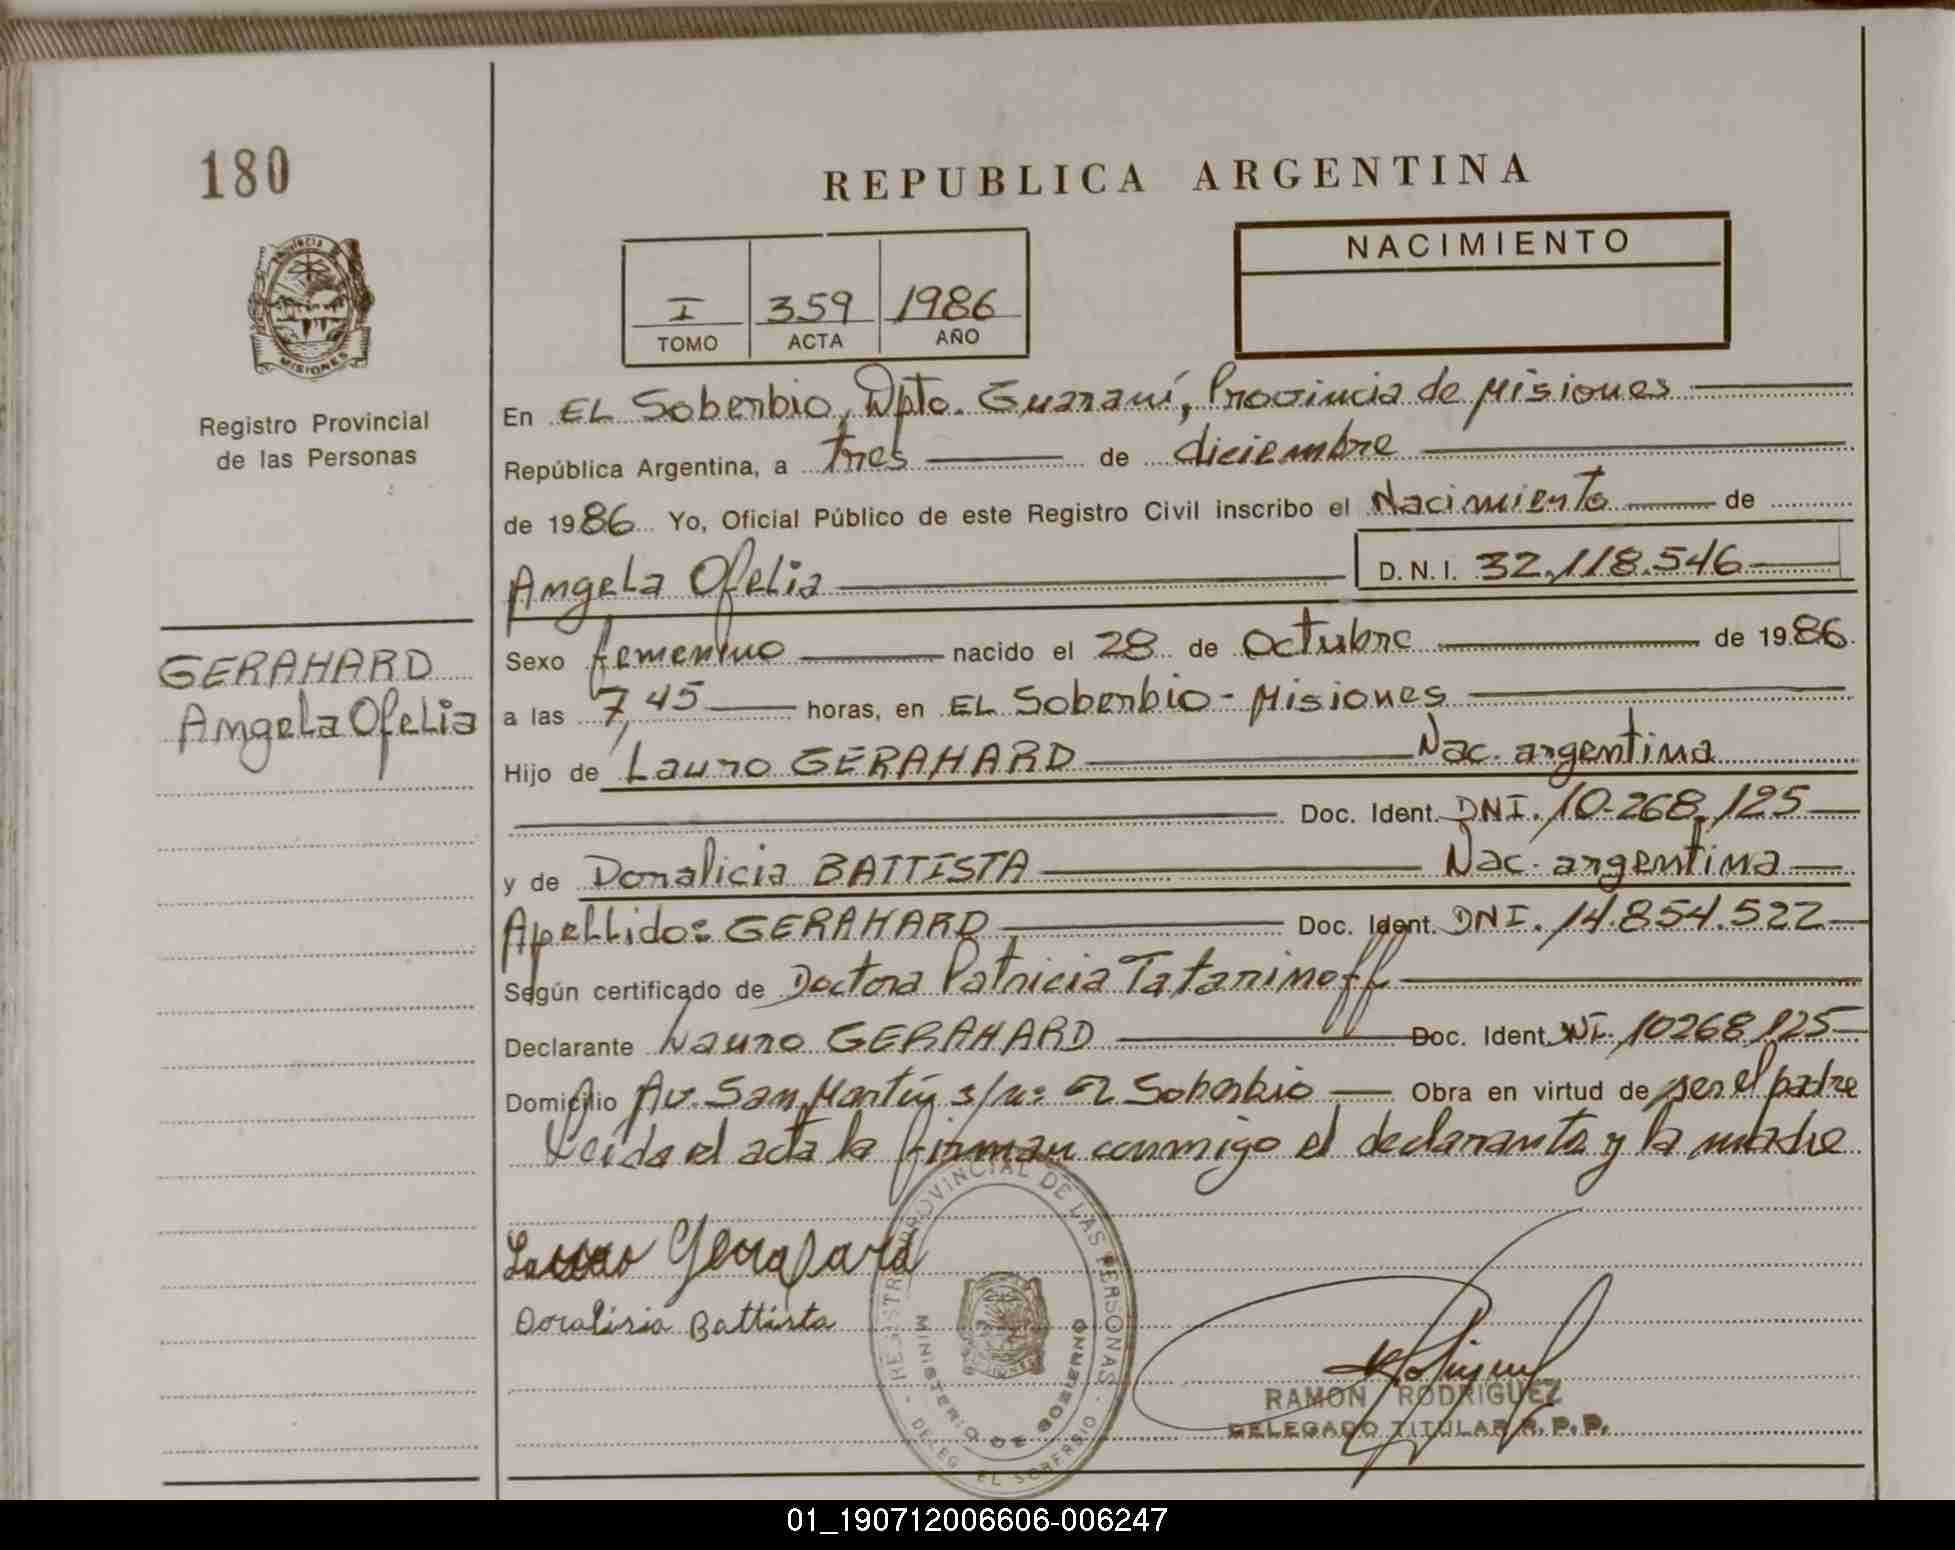 180
REPUBLICA ARGENTINA
PROVINCIA DE
MISIONES
Registro Provincial
de las Personas
I 359 1986
TOMO ACTA AÑO
NACIMIENTO
En EL Soberbio, Dpto. Guaraní, Provincia de Misiones
República Argentina, a tres de diciembre
de 1986 Yo, Oficial Público de este Registro Civil inscribo el Nacimiento de
Angela Ofelia D.N.I. 32.118.546
GERAHARD
Angela Ofelia
Sexo femenino nacido el 28 de Octubre de 1986
a las 7,45 horas, en EL Soberbio - Misiones
Hijo de Lauro GERAHARD Nac. argentina
Doc. Ident. DNI. 10.268.125
y de Doralicia BATTISTA Nac. argentina
Apellido: GERAHARD Doc. Ident. DNI. 14.854.522
Según certificado de Doctora Patricia Tatarinoff
Declarante Lauro GERAHARD Doc. Ident. NI. 10268125
Domicilio Av. San Martín s/n: El Soberbio Obra en virtud de ser el padre
Leída el acta la firman conmigo el declarante y la madre
Lauro Gerahard
Doralisia Battista
REGISTRO PROVINCIAL DE LAS PERSONAS
MINISTERIO DE GOBIERNO
DELEG. EL SOBERBIO
RAMON RODRIGUEZ
DELEGADO TITULAR R.P.P.
01_190712006606-006247